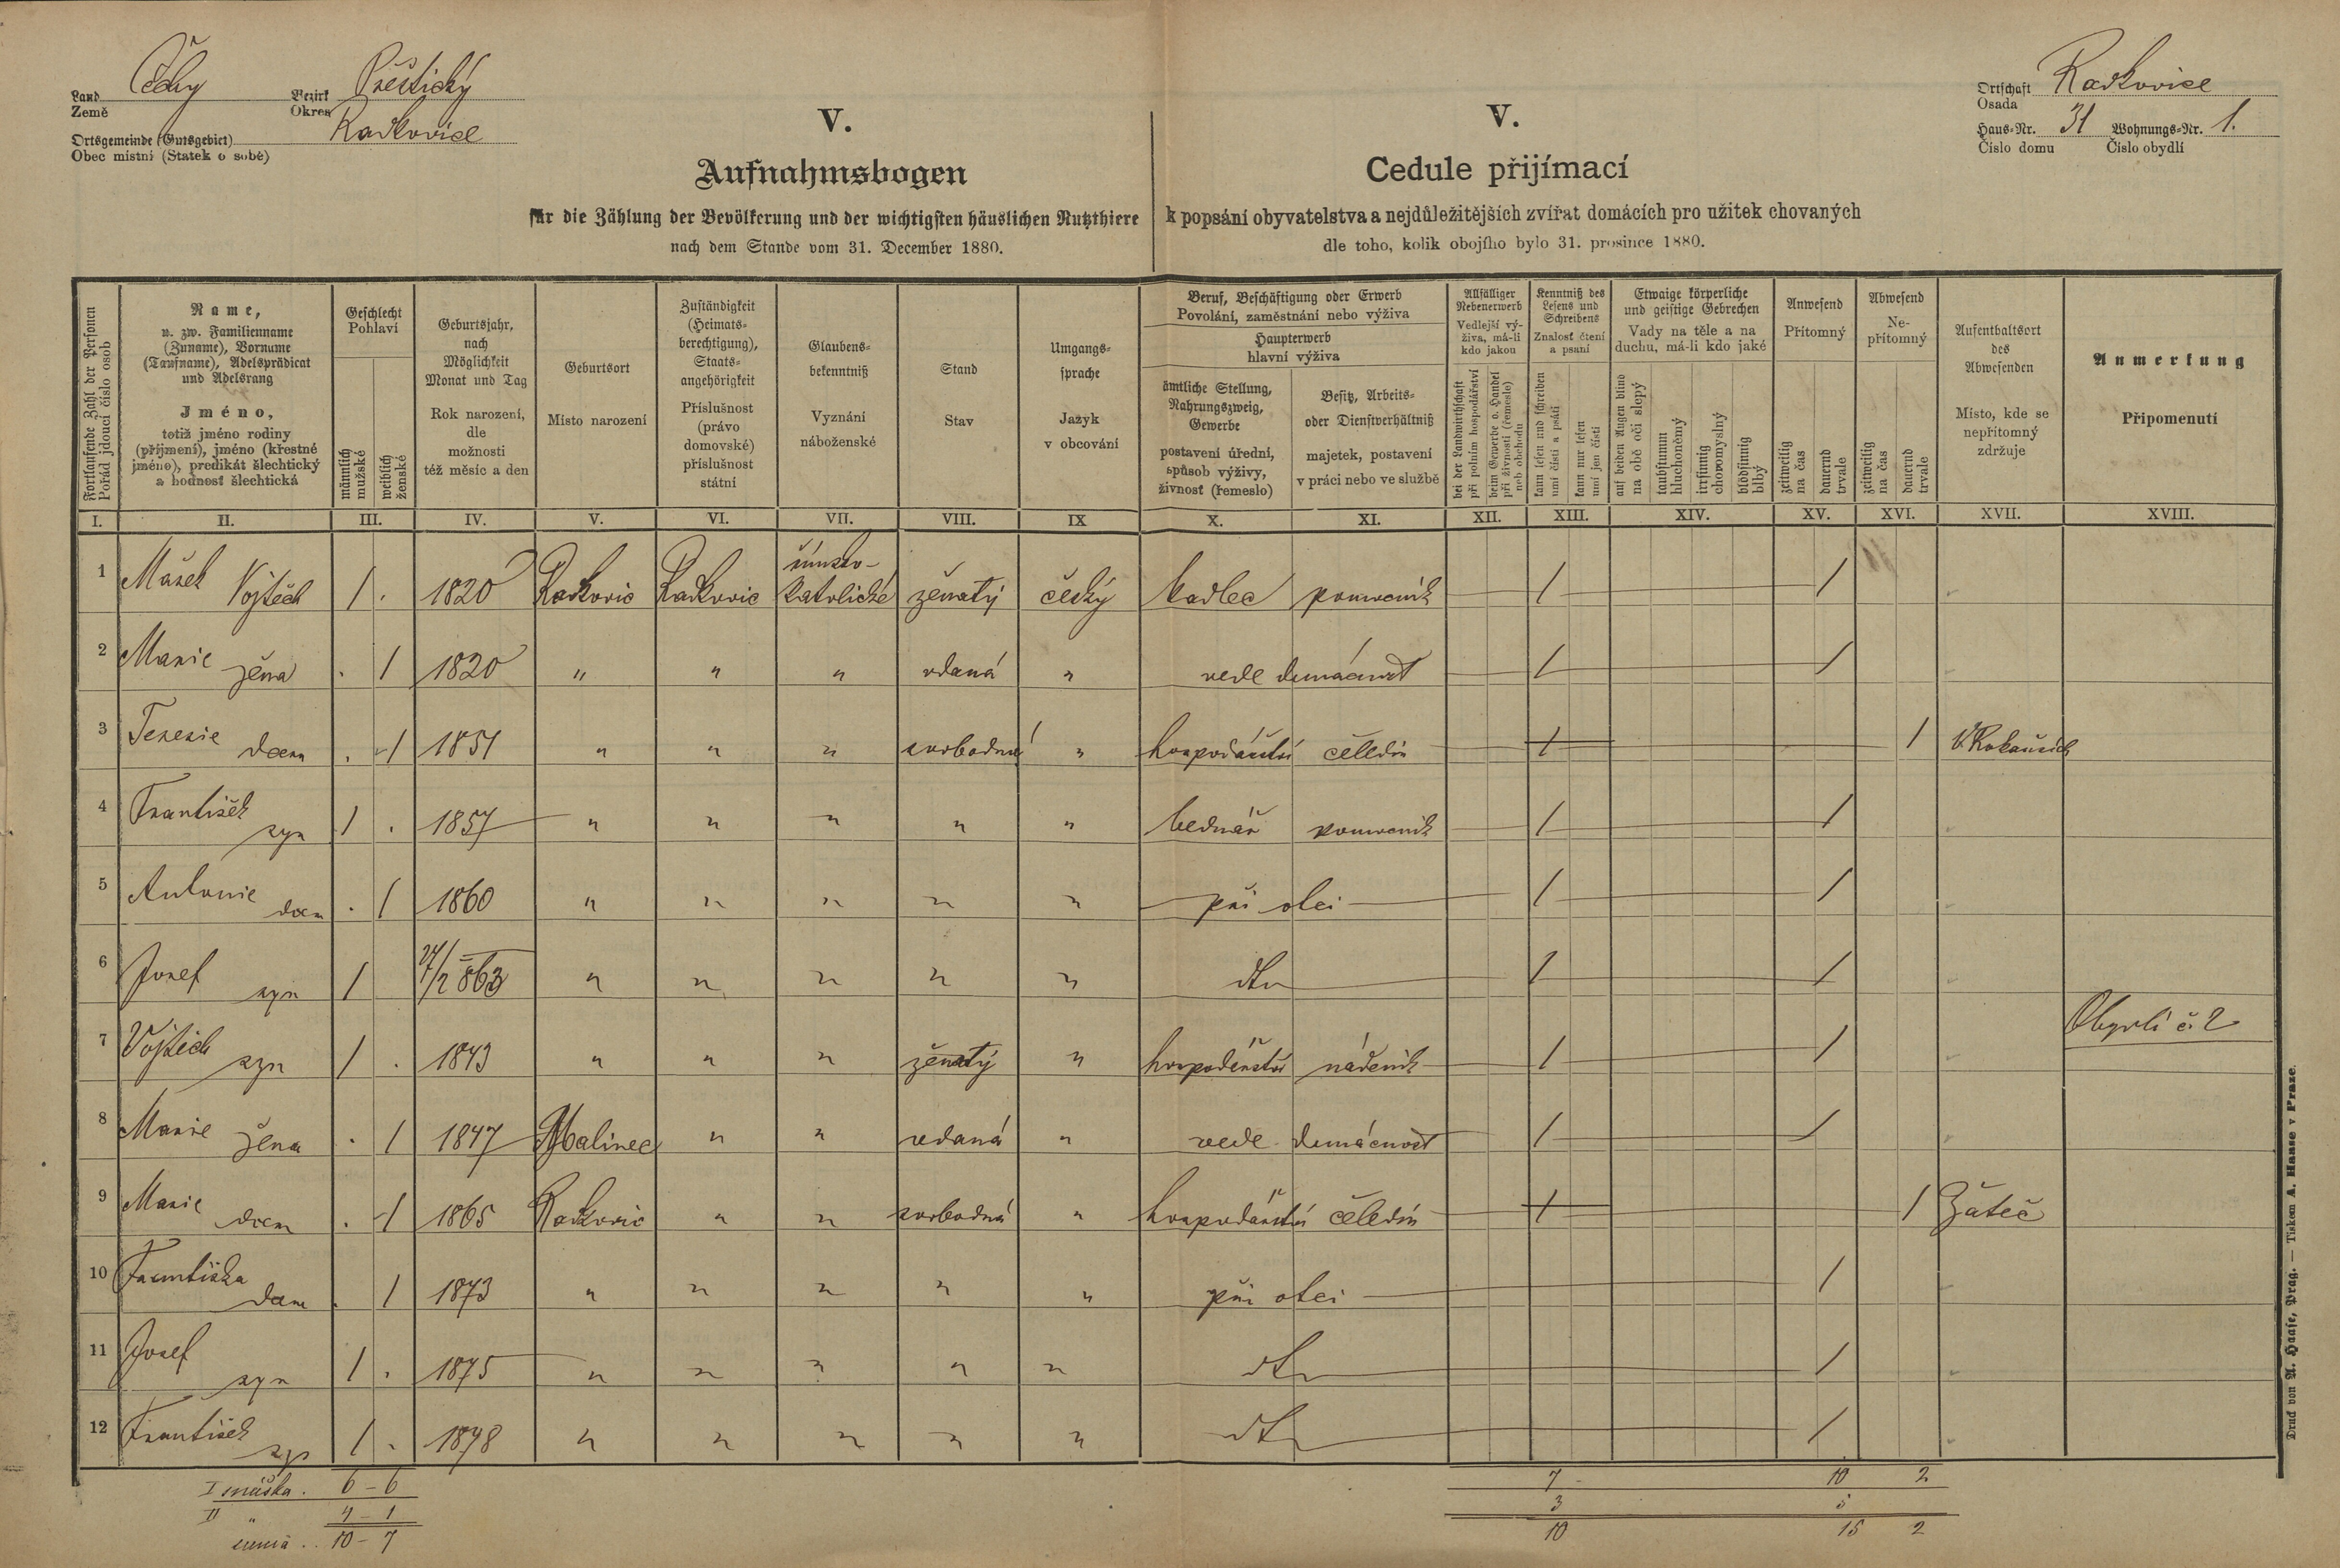 Land Země Čechy Bezirk Okres Přeštický
Ortsgemeinde (Gutsgebiet) Obec místní (Statek o sobě) Radkovice
Ortschaft Osada Radkovice
Haus-Nr. Číslo domu 31 Wohnungs-Nr. Číslo obydlí 1.
V.
Aufnahmsbogen
für die Zählung der Bevölkerung und der wichtigsten häuslichen Nutzthiere
nach dem Stande vom 31. December 1880.
V.
Cedule přijímací
k popsání obyvatelstva a nejdůležitějších zvířat domácích pro užitek chovaných
dle toho, kolik obojího bylo 31. prosince 1880.
Fortlaufende Zahl der Personen
Pořád jdoucí číslo osob
Name,
u. zw. Familienname
(Zuname), Vorname
(Taufname), Adelsprädicat
und Adelsrang
Jméno,
totiž jméno rodiny
(příjmení), jméno (křestné
jméno), predikát šlechtický
a hodnost šlechtická
Geschlecht
Pohlaví
männlich
mužské
weiblich
ženské
Geburtsjahr,
nach
Möglichkeit
Monat und Tag
Rok narození,
dle
možnosti
též měsíc a den
Geburtsort
Místo narození
Zuständigkeit
(Heimats-
berechtigung),
Staats-
angehörigkeit
Příslušnost
(právo
domovské)
příslušnost
státní
Glaubens-
bekenntniß
Vyznání
náboženské
Stand
Stav
Umgangs-
sprache
Jazyk
v obcování
Beruf, Beschäftigung oder Erwerb
Povolání, zaměstnání nebo výživa
Haupterwerb
hlavní výživa
ämtliche Stellung,
Nahrungszweig,
Gewerbe
postavení úřední,
spůsob výživy,
živnost (řemeslo)
Besitz, Arbeits-
oder Dienstverhältniß
majetek, postavení
v práci nebo ve službě
Allfälliger
Nebenerwerb
Vedlejší vý-
živa, má-li
kdo jakou
bei der Landwirthschaft
při polním hospodářství
beim Gewerbe o. Handel
při živnosti (řemesle)
neb obchodu
Kenntniß des
Lesens und
Schreibens
Znalost čtení
a psaní
kann lesen und schreiben
umí čísti a psáti
kann nur lesen
umí jen čísti
Etwaige körperliche
und geistige Gebrechen
Vady na těle a na
duchu, má-li kdo jaké
auf beiden Augen blind
na obě oči slepý
taubstumm
hluchoněmý
irrsinnig
choromyslný
blödsinnig
blbý
Anwesend
Přítomný
zeitweilig
na čas
dauernd
trvale
Abwesend
Ne-
přítomný
zeitweilig
na čas
dauernd
trvale
Aufenthaltsort
des
Abwesenden
Místo, kde se
nepřítomný
zdržuje
Anmerkung
Připomenutí
I. II. III. IV. V. VI. VII. VIII. IX X. XI. XII. XIII. XIV. XV. XVI. XVII. XVIII.
1 Mašek Vojtěch 1 . 1820 Radkovic Radkovic římsko-katolické ženatý český tkadlec pomocník 1 1
2 Marie žena . 1 1820 " " " vdaná " vede domácnost 1 1
3 Terezie dcera . 1 1851 " " " svobodná " hospodářství čeledín 1 1
4 František syn 1 . 1857 " " " " " bednář pomocník 1 1
5 Antonie dcera . 1 1860 " " " " " při otci 1 1
6 Josef syn 1 " " " " " dto 1 1
7 Vojtěch syn 1 . 1843 " " " ženatý " hospodářství nádeník 1 1 Obydlí č. 2
8 Marie žena . 1 1847 Malinec " " vdaná " vede domácnost 1 1
9 Marie dcera . 1 1865 Radkovic " " svobodná " hospodářství čeledín 1 1 Žateč
10 Františka dcera . 1 1873 " " " " " při otci 1
11 Josef syn 1 . 1875 " " " " " dto 1
12 František syn 1 . 1878 " " " " " dto 1
6 – 6 7 10 2
II " 4 – 1 3 5
suma .. 10 – 7 10 15 2
Druck von A. Haase, Prag. — Tiskem A. Haase v Praze.